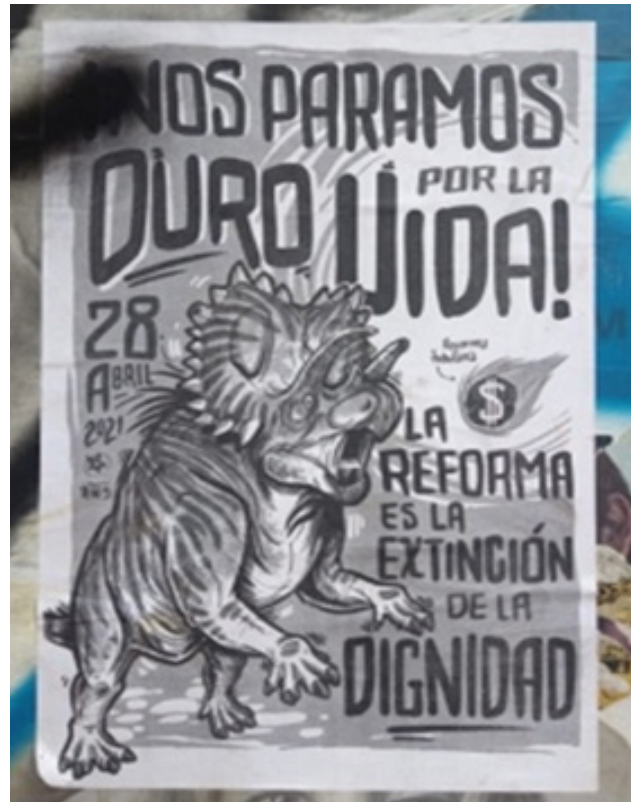 ¡NOS PARAMOS
DURO POR LA
VIDA!
28
ABRIL
2021
LA
REFORMA
ES LA
EXTINCIÓN
DE LA
DIGNIDAD